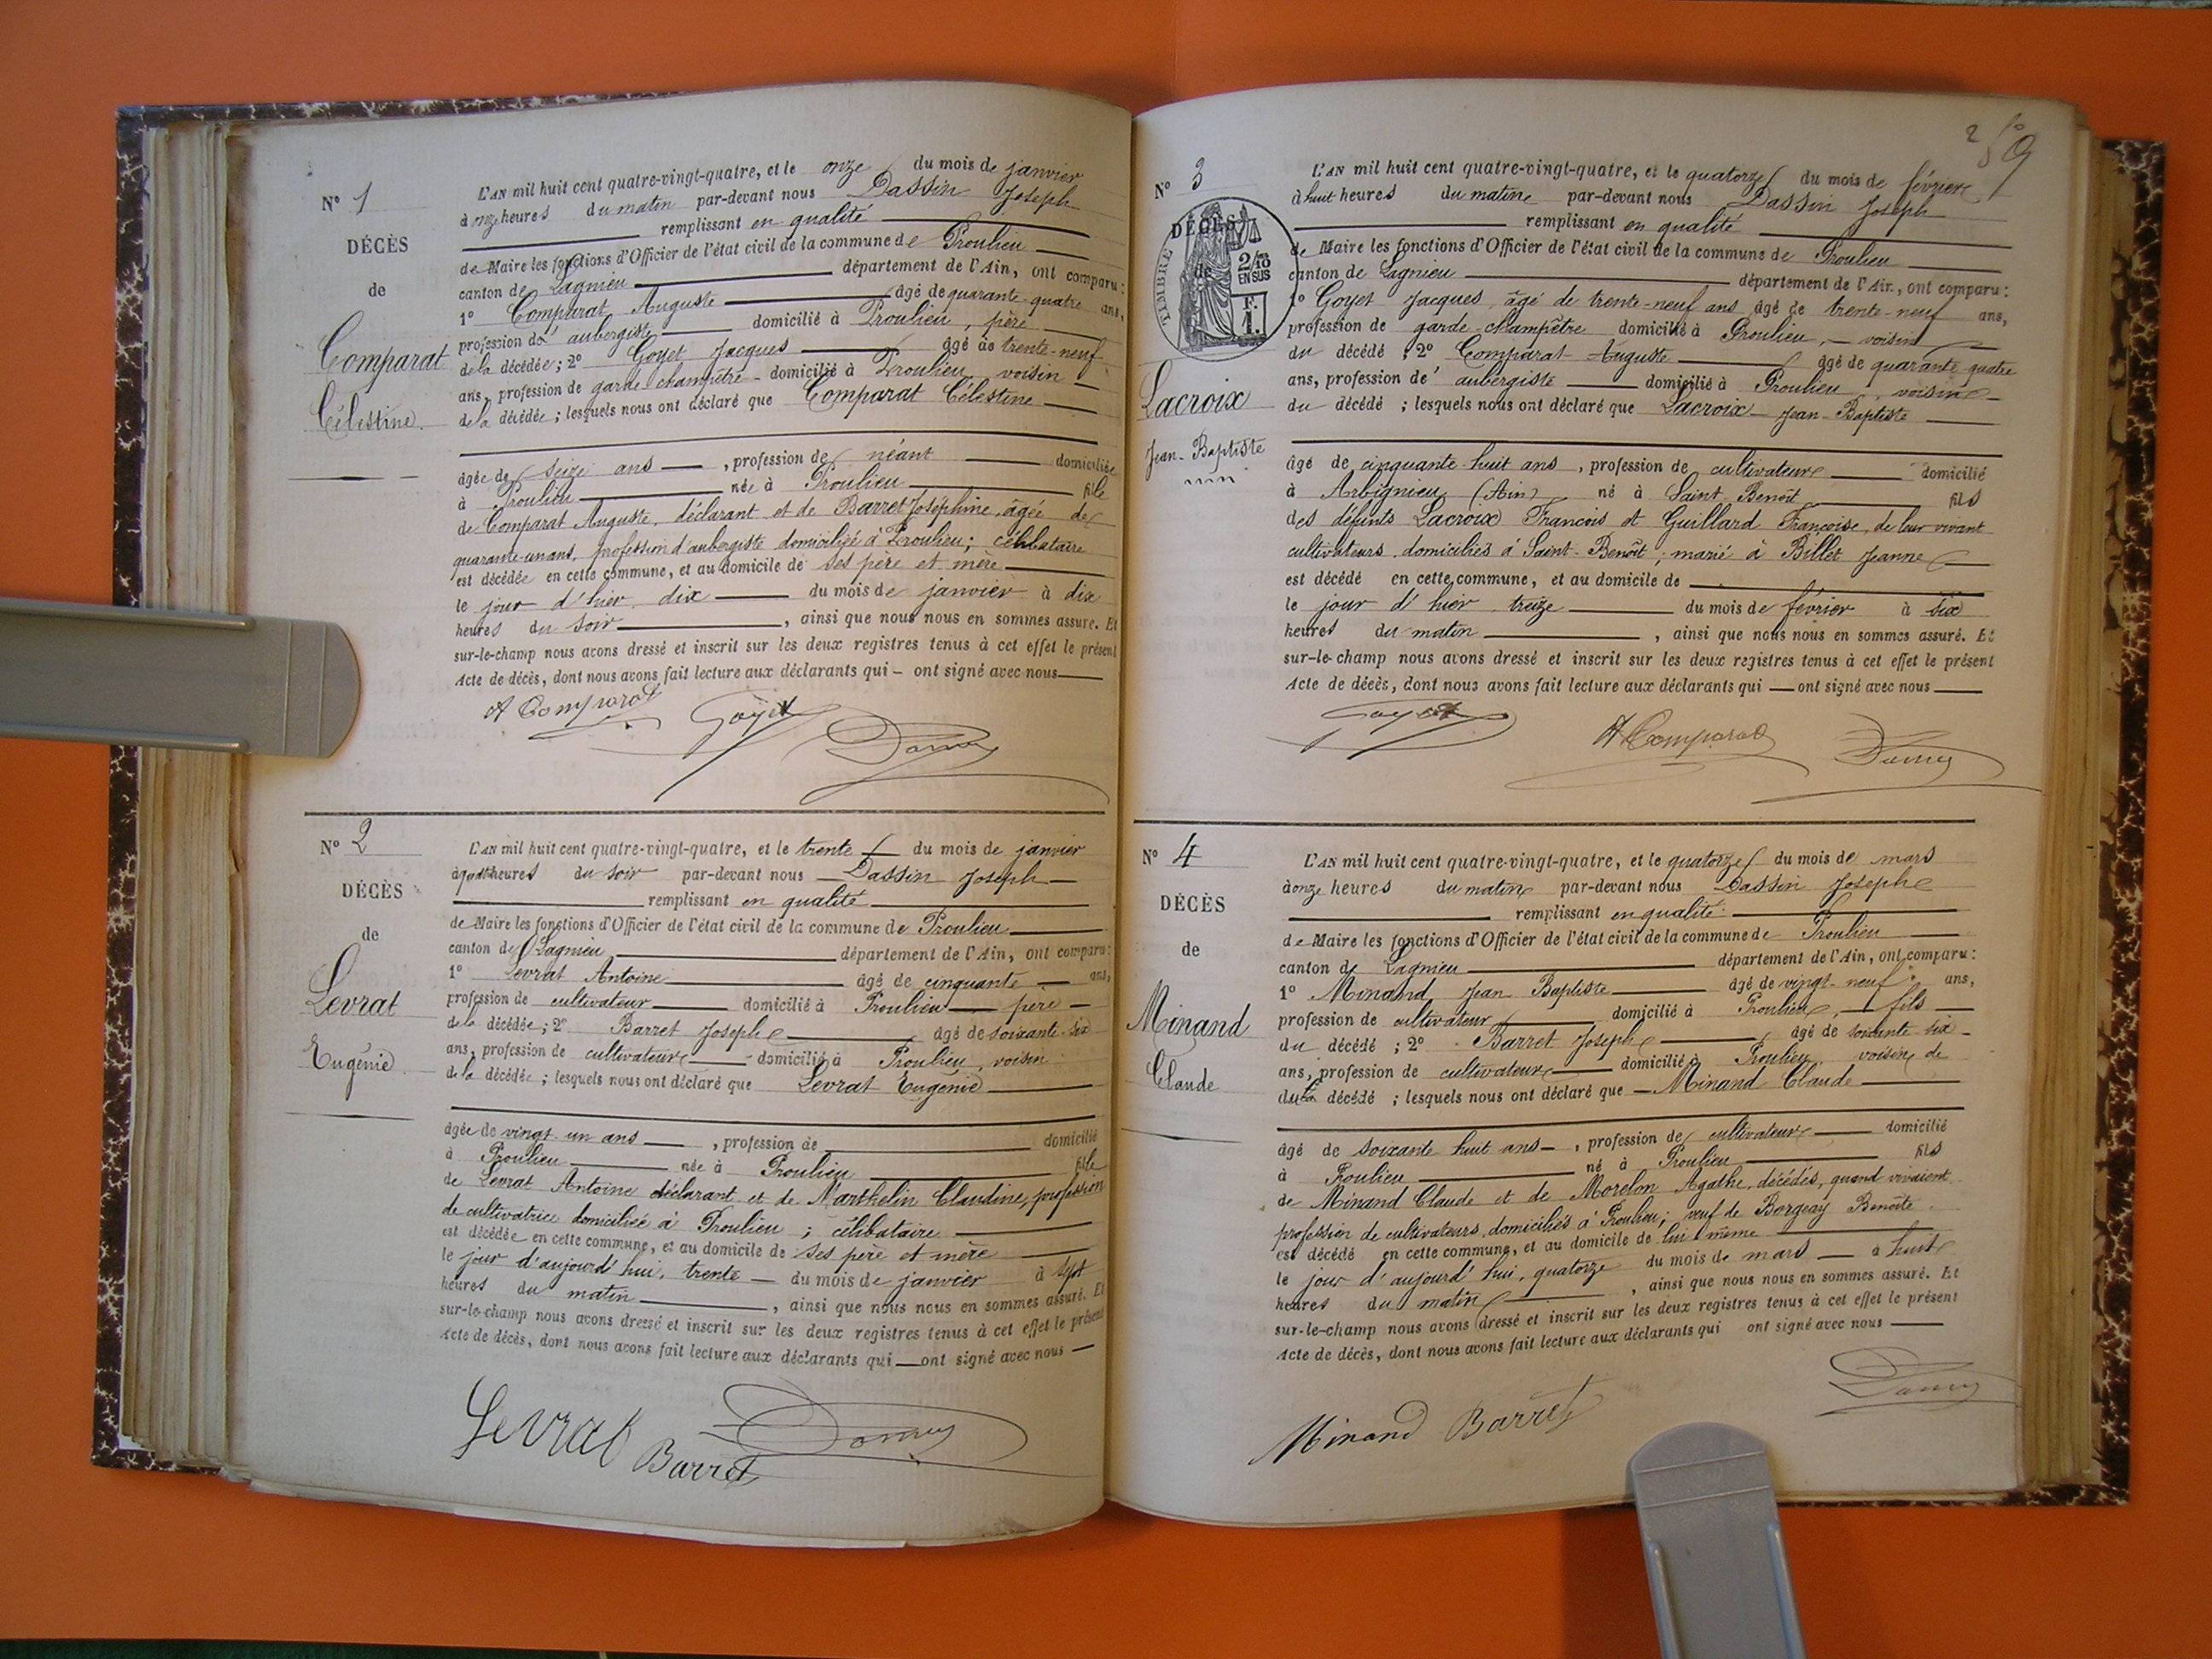 N° 1
DÉCÈS
de
Comparat
Célestine.
L'AN mil huit cent quatre-vingt-quatre, et le onze du mois de janvier
à onze heures du matin par-devant nous Dassin Joseph
remplissant en qualité
de Maire les fonctions d'Officier de l'état civil de la commune de Proulieu
canton de Lagnieu département de l'Ain, ont comparu :
1° Comparat Auguste âgé de quarante-quatre ans,
profession d' aubergiste domicilié à Proulieu, père
de la décédée ; 2° Goyet Jacques âgé de trente-neuf
ans, profession de garde-champêtre domicilié à Proulieu, voisin
de la décédée ; lesquels nous ont déclaré que Comparat Célestine
âgée de seize ans, profession de néant domiciliée
à Proulieu née à Proulieu fille
de Comparat Auguste, déclarant et de Barret Joséphine, âgée de
quarante-un ans, profession d'aubergiste domiciliée à Proulieu; célibataire
est décédée en cette commune, et au domicile de ses père et mère
le jour d'hier, dix du mois de janvier à dix
heures du soir, ainsi que nous nous en sommes assuré. Et
sur-le-champ nous avons dressé et inscrit sur les deux registres tenus à cet effet le présent
Acte de décès, dont nous avons fait lecture aux déclarants qui ont signé avec nous
A Comparat Goyet
N° 2
DÉCÈS
de
Levrat
Eugénie.
L'AN mil huit cent quatre-vingt-quatre, et le trente du mois de janvier
à quatre heures du soir par-devant nous Dassin Joseph
remplissant en qualité
de Maire les fonctions d'Officier de l'état civil de la commune de Proulieu
canton de Lagnieu département de l'Ain, ont comparu :
1° Levrat Antoine âgé de cinquante ans,
profession de cultivateur domicilié à Proulieu père
de la décédée ; 2° Barret Joseph âgé de soixante six
ans, profession de cultivateur domicilié à Proulieu, voisin
de la décédée ; lesquels nous ont déclaré que Levrat Eugénie
âgée de vingt-un ans, profession de domicilié
à Proulieu née à Proulieu fille
de Levrat Antoine déclarant et de Marthelin Claudine, profession
de cultivatrice domiciliée à Proulieu ; célibataire
est décédée en cette commune, et au domicile de ses père et mère
le jour d'aujourd'hui, trente du mois de janvier à sept
heures du matin, ainsi que nous nous en sommes assuré. Et
sur-le-champ nous avons dressé et inscrit sur les deux registres tenus à cet effet le présent
Acte de décès, dont nous avons fait lecture aux déclarants qui ont signé avec nous
Levrat Barret
N° 3
DÉCÈS
de
TIMBRE
2/10
EN SUS
F.
1.
Lacroix
Jean-Baptiste
L'AN mil huit cent quatre-vingt-quatre, et le quatorze du mois de février
à huit heures du matin par-devant nous Dassin Joseph
remplissant en qualité
de Maire les fonctions d'Officier de l'état civil de la commune de Proulieu
canton de Lagnieu département de l'Ain, ont comparu :
1° Goyet Jacques, âgé de trente-neuf ans âgé de trente-neuf ans,
profession de garde-champêtre domicilié à Proulieu, voisin
du décédé ; 2° Comparat Auguste âgé de quarante quatre
ans, profession d' aubergiste domicilié à Proulieu, voisin
du décédé ; lesquels nous ont déclaré que Lacroix Jean-Baptiste
âgé de cinquante-huit ans, profession de cultivateur domicilié
à Arbignieu (Ain) né à Saint-Benoît fils
des défunts Lacroix François et Guillard Françoise, de leur vivant
cultivateurs, domiciliés à Saint-Benoît ; marié à Billet Jeanne
est décédé en cette commune, et au domicile de
le jour d'hier treize du mois de février à six
heures du matin, ainsi que nous nous en sommes assuré. Et
sur-le-champ nous avons dressé et inscrit sur les deux registres tenus à cet effet le présent
Acte de décès, dont nous avons fait lecture aux déclarants qui ont signé avec nous
Goyet A Comparat
N° 4
DÉCÈS
de
Minand
Claude
L'AN mil huit cent quatre-vingt-quatre, et le quatorze du mois de mars
à onze heures du matin par-devant nous Dassin Joseph
remplissant en qualité
de Maire les fonctions d'Officier de l'état civil de la commune de Proulieu
canton de Lagnieu département de l'Ain, ont comparu :
1° Minand Jean Baptiste âgé de vingt-neuf ans,
profession de cultivateur domicilié à Proulieu, fils
du décédé ; 2° Barret Joseph âgé de soixante six
ans, profession de cultivateur domicilié à Proulieu, voisin de
du décédé ; lesquels nous ont déclaré que Minand Claude
âgé de soixante huit ans, profession de cultivateur domicilié
à Proulieu né à Proulieu fils
de Minand Claude et de Morelon Agathe, décédés, quand vivaient
profession de cultivateurs, domiciliés à Proulieu; veuf de Borguay Benoîte
est décédé en cette commune, et au domicile de lui même
le jour d'aujourd'hui, quatorze du mois de mars à huit
heures du matin, ainsi que nous nous en sommes assuré. Et
sur-le-champ nous avons dressé et inscrit sur les deux registres tenus à cet effet le présent
Acte de décès, dont nous avons fait lecture aux déclarants qui ont signé avec nous
Minand Barret